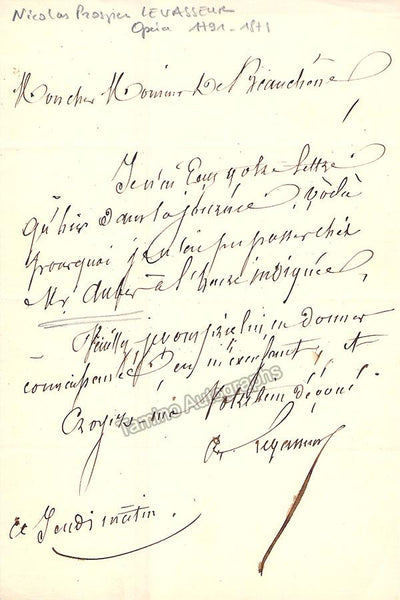 Nicolas Prosper LEVASSEUR
Opéra 1791-1871
Mon cher Monsieur De Beauchêne
Je n'ai eu votre lettre
qu'hier dans la journée, voilà
pourquoi je n'ai pu passer chez
Mr. Auber à l'heure indiquée,
Veuillez, je vous prie lui en donner
connaissance en m'excusant, et
Croyez moi Votre bien dévoué
Levasseur
ce Jeudi matin.
Tamino Autographs